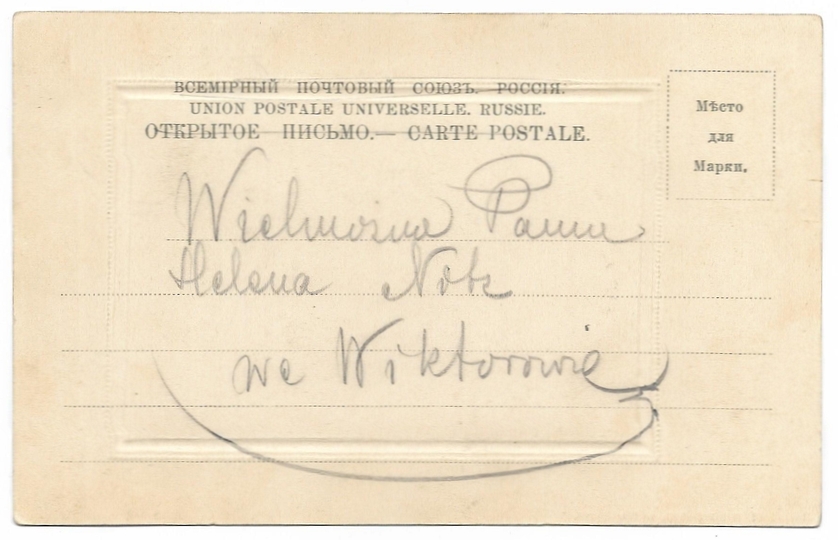 ВСЕМІРНЫЙ ПОЧТОВЫЙ СОЮЗЪ. РОССІЯ.
UNION POSTALE UNIVERSELLE. RUSSIE.
ОТКРЫТОЕ ПИСЬМО.— CARTE POSTALE.
Мѣсто
для
Марки.
Wielmożna Panna
Helena Notz
we Wiktorowie